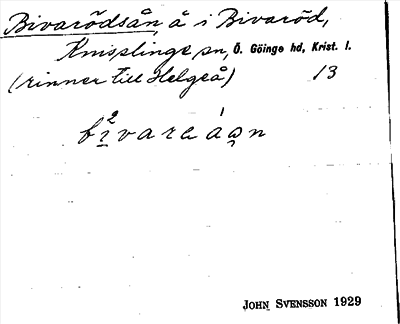 Bivarödsån, å i Bivaröd,
Knisslinge sn, Ö. Göinge hd, Krist. l.
(rinner till Helgeå) 13
John Svensson 1929